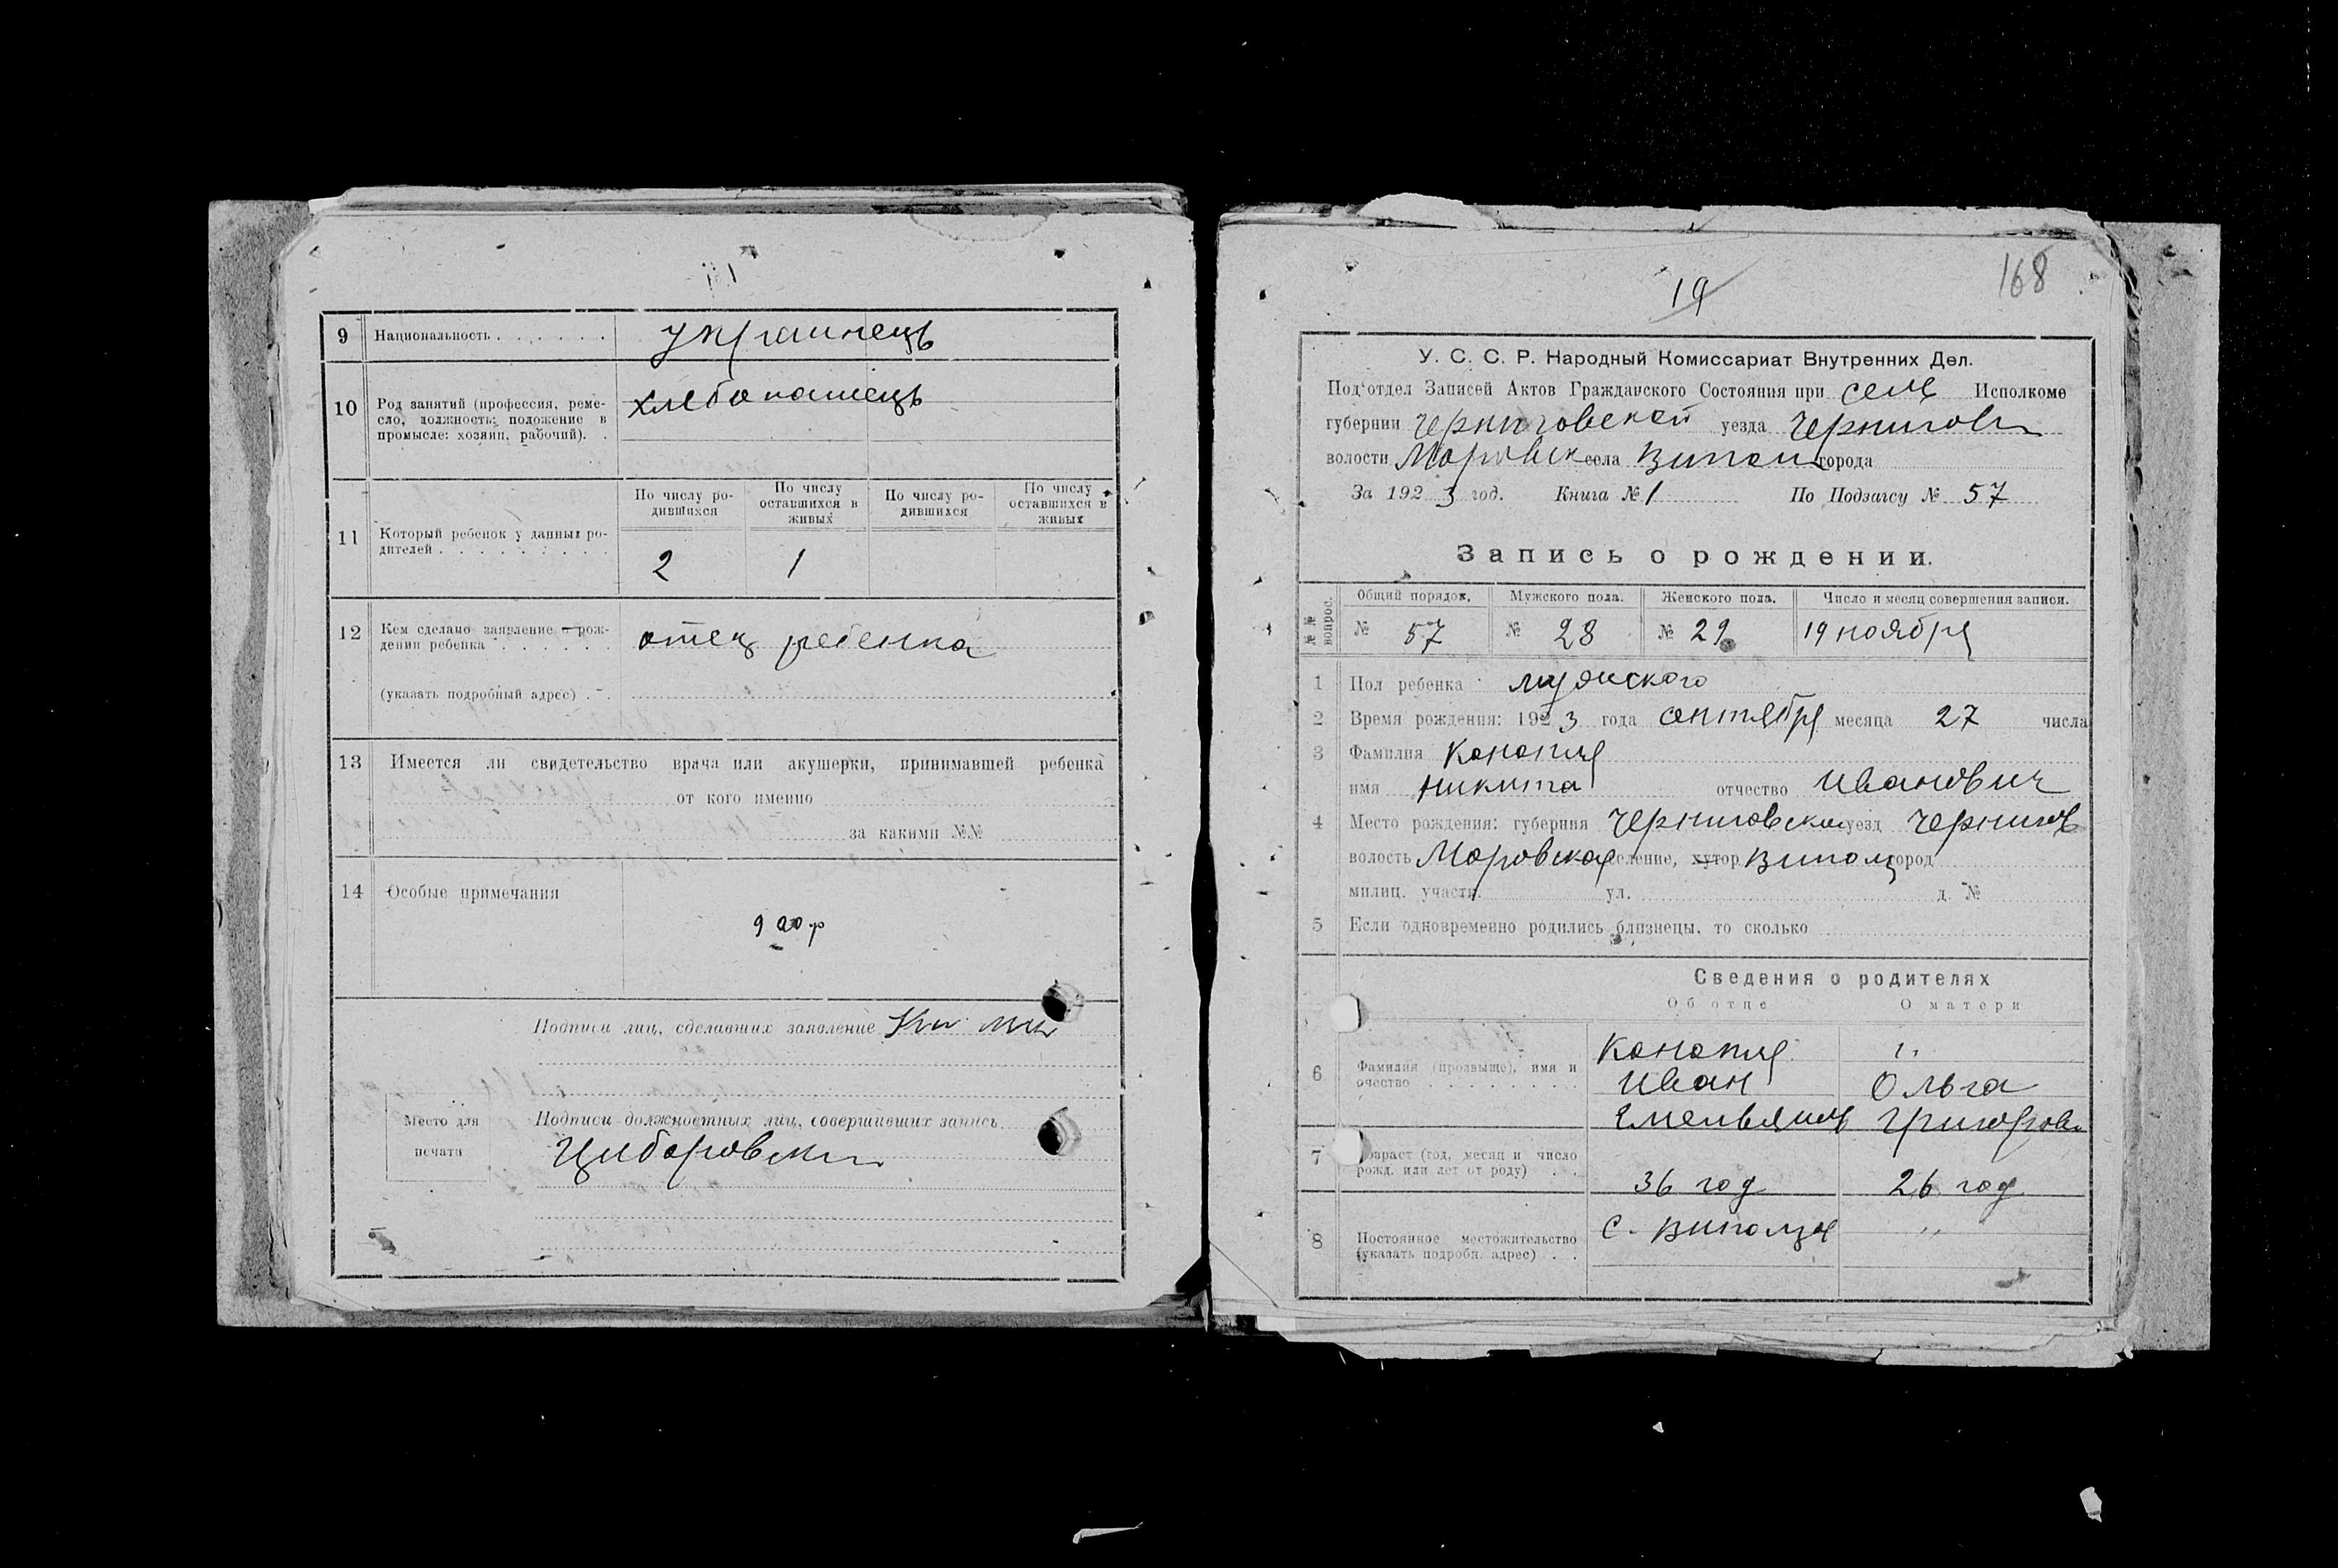 9 Национальность . . . . . . . украинець
10 Род занятий (профессия, реме-
сло, должность: положение в
промысле: хозяин, рабочий). .
хлебопашець
11 Который ребенок у данных ро-
дителей . . . . . . . . .
По числу ро-
дившихся
По числу
оставшихся в
живых
По числу ро-
дившихся
По числу
оставшихся в
живых
2 1
12 Кем сделано заявление о рож-
дении ребенка . . . . . .
отец ребенка
(указать подробный адрес) . .
13 Имеется ли свидетельство врача или акушерки, принимавшей ребенка
от кого именно
за какими №№
14 Особые примечания
Подписи лиц, сделавших заявление
Место для
печати
Подписи должностных лиц, совершивших запись
19
168
У. С. С. Р. Народный Комиссариат Внутренних Дел.
Под'отдел Записей Актов Гражданского Состояния при селі Исполкоме
губернии Черниговской уезда Чернигов
волости Моровск села Випол города
За 1923 год. Книга № 1 По Подзагсу № 57
Запись о рождении.
№№ вопрос.
Общий порядок. Мужского пола. Женского пола. Число и месяц совершения записи.
№ 57 № 28 № 29 19 ноября
1 Пол ребенка мужского
2 Время рождения: 1923 года сентября месяца 27 числа
3 Фамилия Конопля
имя Никита отчество Иванович
4 Место рождения: губерния Черниговская уезд Чернигов
волость Моровская селение, хутор Виполз город
милиц. участк. ул. д. №
5 Если одновременно родились близнецы, то сколько
Сведения о родителях
Об отце О матери
6 Фамилия (прозвыще), имя и
очество . . . . . . . . .
Конопля "
Иван Ольга
Емельянов Григоров
7 Возраст (год, месяц и число
рожд. или лет от роду) . .
36 год 26 год
8 Постоянное местожительство
(указать подробн. адрес) . .
с. Виползя "